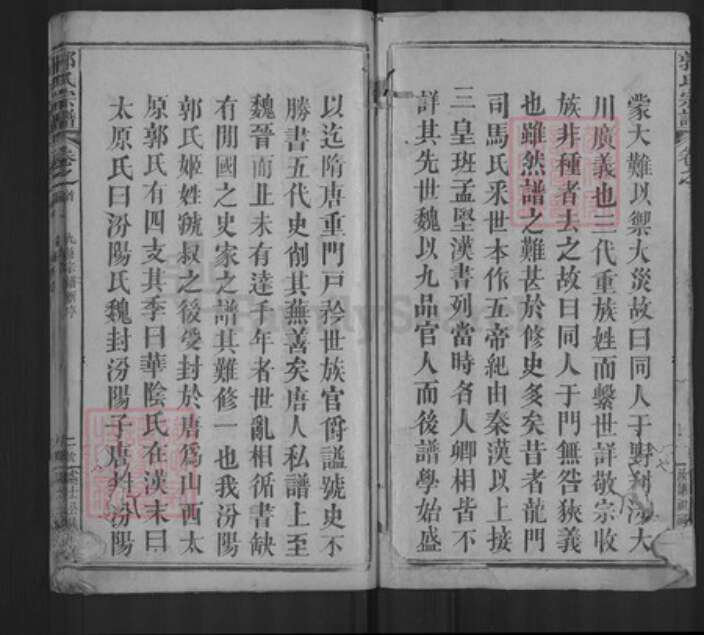 郭氏宗譜 卷之
蒙大難以禦大災故曰同人于野利涉大
川廣義也三代重族姓而繫世詳敬宗收
族非種者去之故曰同人于門無咎狹義
也雖然譜之難甚於修史多矣昔者龍門
司馬氏釆世本作五帝紀由秦漢以上接
三皇班孟堅漢書列當時各人卿相皆不
詳其先世魏以九品官人而後譜學始盛
以迄隋唐重門戶矜世族官爵諡號史不
勝書五代史削其蕪善矣唐人私譜上至
魏晉而止未有達千年者世亂相循書缺
有間國之史家之譜其難修一也我汾陽
郭氏姬姓虢叔之後受封於唐為山西太
原郭氏有四支其季曰華陰氏在漢末曰
太原氏曰汾陽氏魏封汾陽子唐封汾陽
郭氏宗譜 卷之一